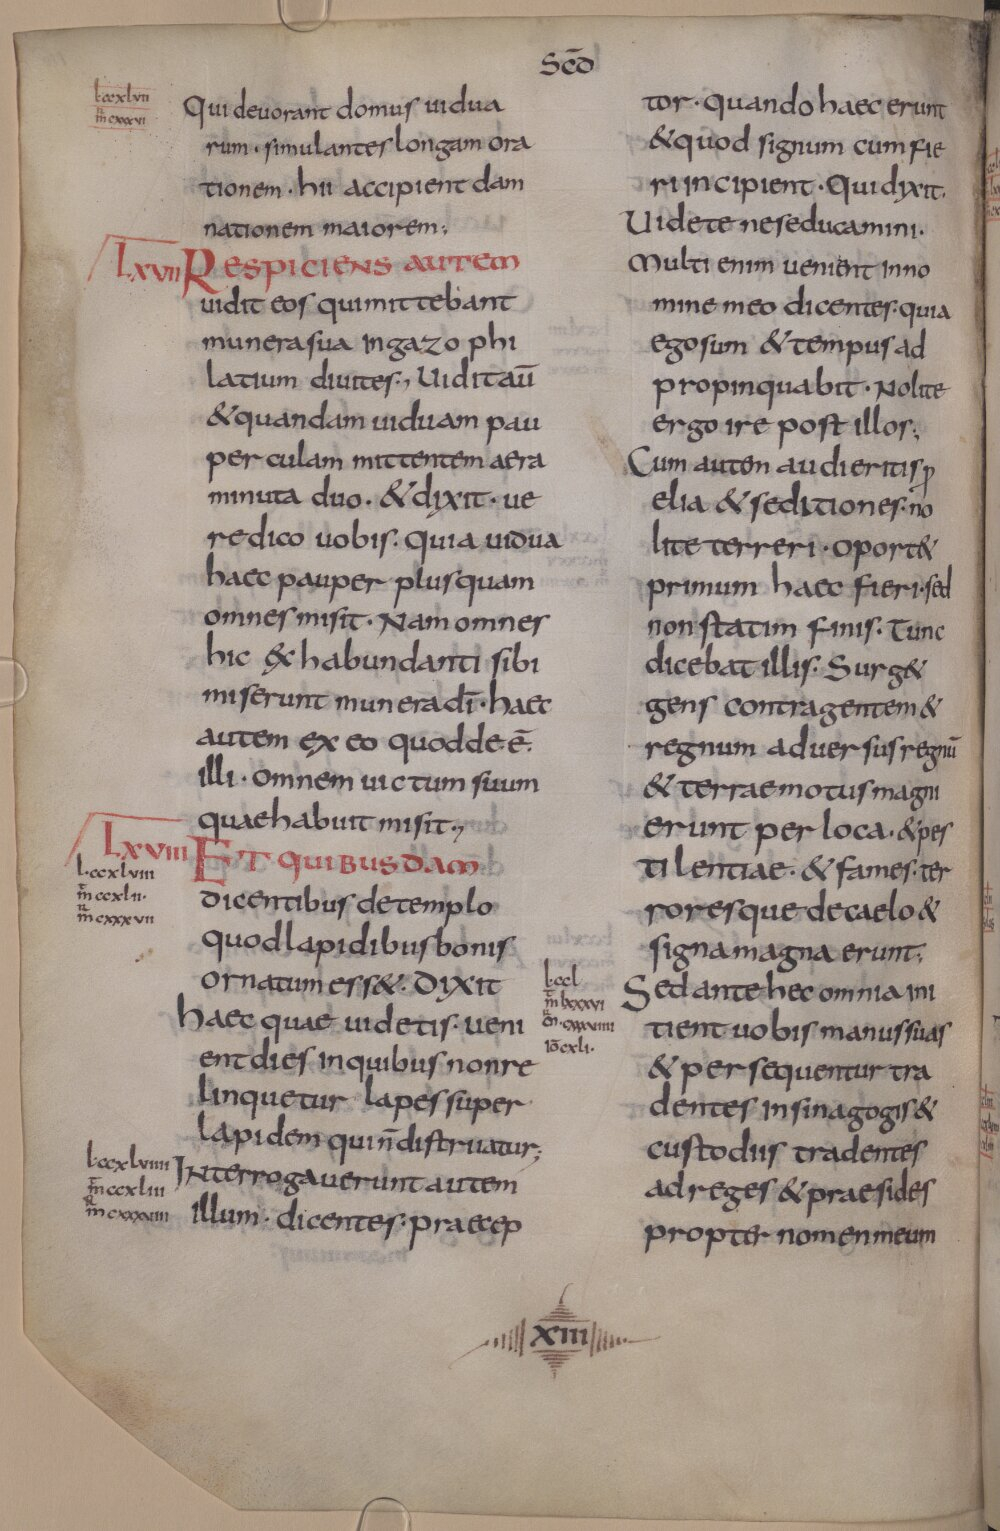 Sec̄d
l·ccxlvii
m̄ cxxxvi
Qui devorant domus vidua
rum · simulantes longam ora
tionem · hii accipient dam
nationem maiorem;
LXVII Respiciens autem
vidit eos qui mittebant
munera sua in gazo phi
latium divites·, Vidit aū
& quandam viduam pau
per culam mittentem aera
minuta duo · & dixit · ve
re dico vobis · Quia vidua
haec pauper plus quam
omnes misit · Nam omnes
hic ex habundanti sibi
miserunt munera dī · haec
autem ex eo quod de·ē·
illi · omnem victum suum
quae habuit misit·,
LXVIII Et quibusdam
l·ccxlviii
m̄ ccxlii·
m̄ cxxxvii
dicentibus de templo
quod lapidibus bonis
ornatum ess&· Dixit
haec quae videtis · veni
ent dies in quibus non re
linquetur lapes super
lapidem qui n̄ distruatur;
l·ccxlviiii
m̄ ccxliii
m̄ cxxxviii
Interrogaverunt autem
illum · dicentes : praecep
tor · quando haec erunt
& quod signum cum fie
ri incipient · Qui dixit·
Videte ne seducamini·
Multi enim venient in no
mine meo dicentes : quia
ego sum & tempus ad
propinquabit · Nolite
ergo ire post illos·,
Cum autem audieritis p̱
elia & seditiones · no
lite terreri · oport&
primum haec fieri · sed
non statim finis · Tunc
dicebat illis · Surg&
gens contra gentem &
regnum adversus regnū
& terrae motus magni
erunt per loca · & pes
tilentiae · & fames · ter
roresque de caelo &
signa magna erunt;
l·ccl
m̄ lxxxvi
m̄·cxxxviiii
iō cxli·
Sed ante hec omnia ini
tient vobis manus suas
& persequentur tra
dentes in sinagogis &
custodiis tradentes
ad reges & praesides
propter nomen meum
XIII